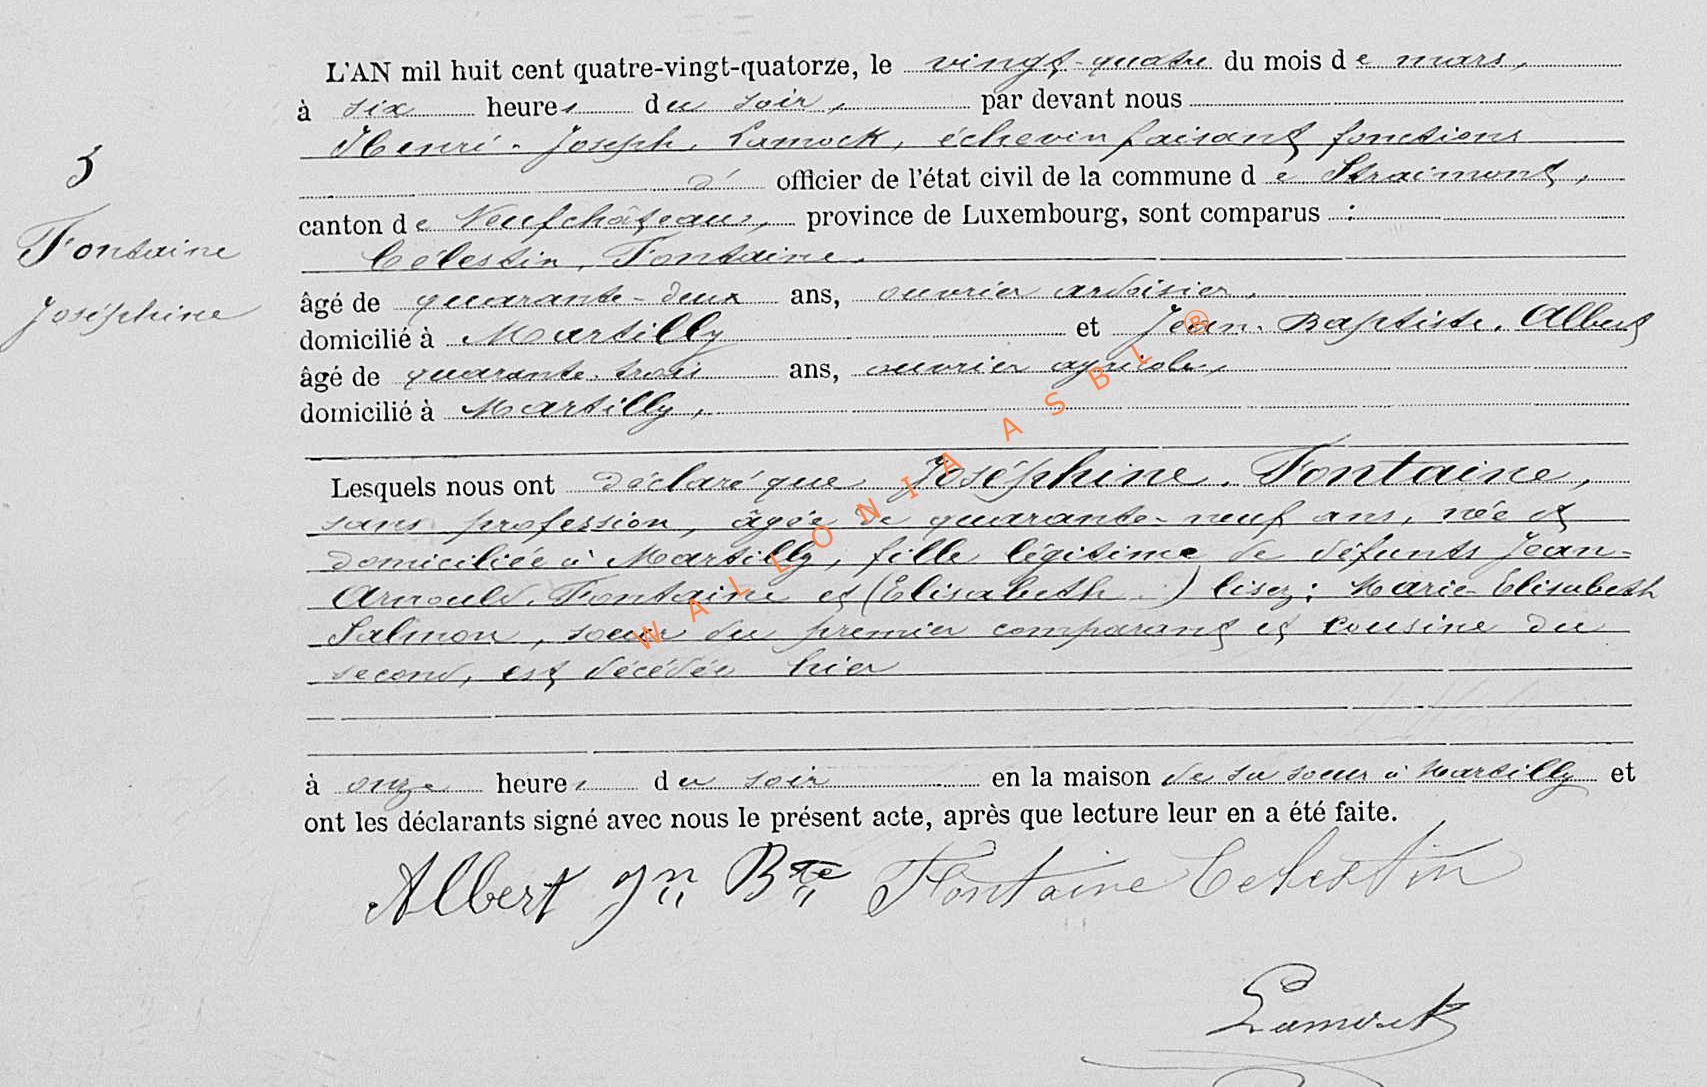 L'AN mil huit cent quatre-vingt-quatorze, le vingt-quatre du mois de mars,
à six heures du soir, par devant nous
Henri-Joseph. Lamock, échevin faisant fonctions
d' officier de l'état civil de la commune de Straimont,
canton de Neufchâteau, province de Luxembourg, sont comparus :
Célestin. Fontaine.
âgé de quarante-deux ans, ouvrier ardoisier,
domicilié à Martilly et Jean-Baptiste. Albert
âgé de quarante-trois ans, ouvrier agricole,
domicilié à Martilly,
3
Fontaine
Joséphine
Lesquels nous ont déclaré que Joséphine. Fontaine,
sans profession, âgée de quarante-neuf ans, née et
domiciliée à Martilly, fille légitime de défunts Jean-
Arnould. Fontaine et (Elisabeth ) lisez : Marie-Elisabeth
Salmon, soeur du premier comparant et cousine du
second, est décédée hier
à onze heures du soir en la maison de sa soeur à Martilly et
ont les déclarants signé avec nous le présent acte, après que lecture leur en a été faite.
Albert Jn Bte Fontaine Celestin
Lamock
WALLONIA ASBL ®